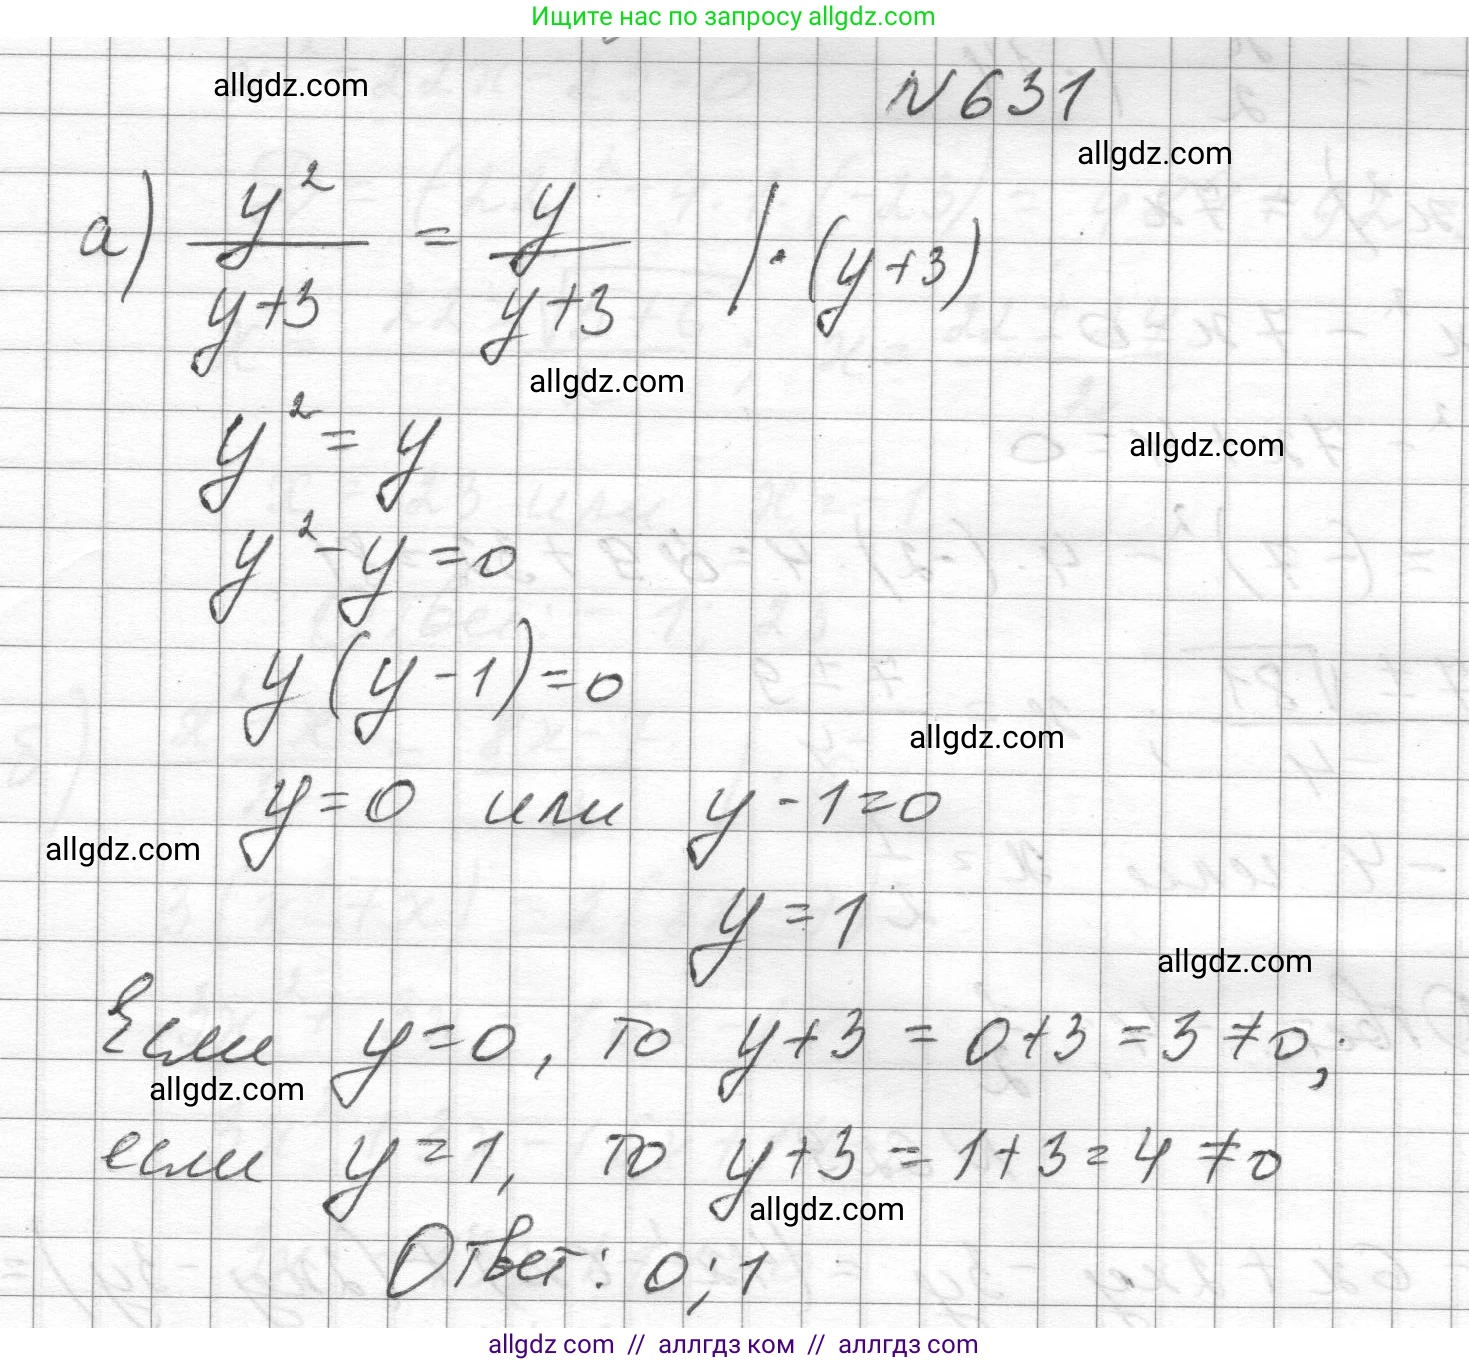 Ищите нас по запросу allgdz.com
allgdz.com
N 631
allgdz.com
а) y²/(y+3) = y/(y+3) | · (y+3)
allgdz.com
y² = y
allgdz.com
y² - y = 0
y (y - 1) = 0
allgdz.com
y = 0 или y - 1 = 0
allgdz.com
y = 1
allgdz.com
Если y = 0, то y + 3 = 0 + 3 = 3 ≠ 0;
allgdz.com
если y = 1, то y + 3 = 1 + 3 = 4 ≠ 0
allgdz.com
Ответ: 0; 1
allgdz.com // аллгдз ком // аллгдз com